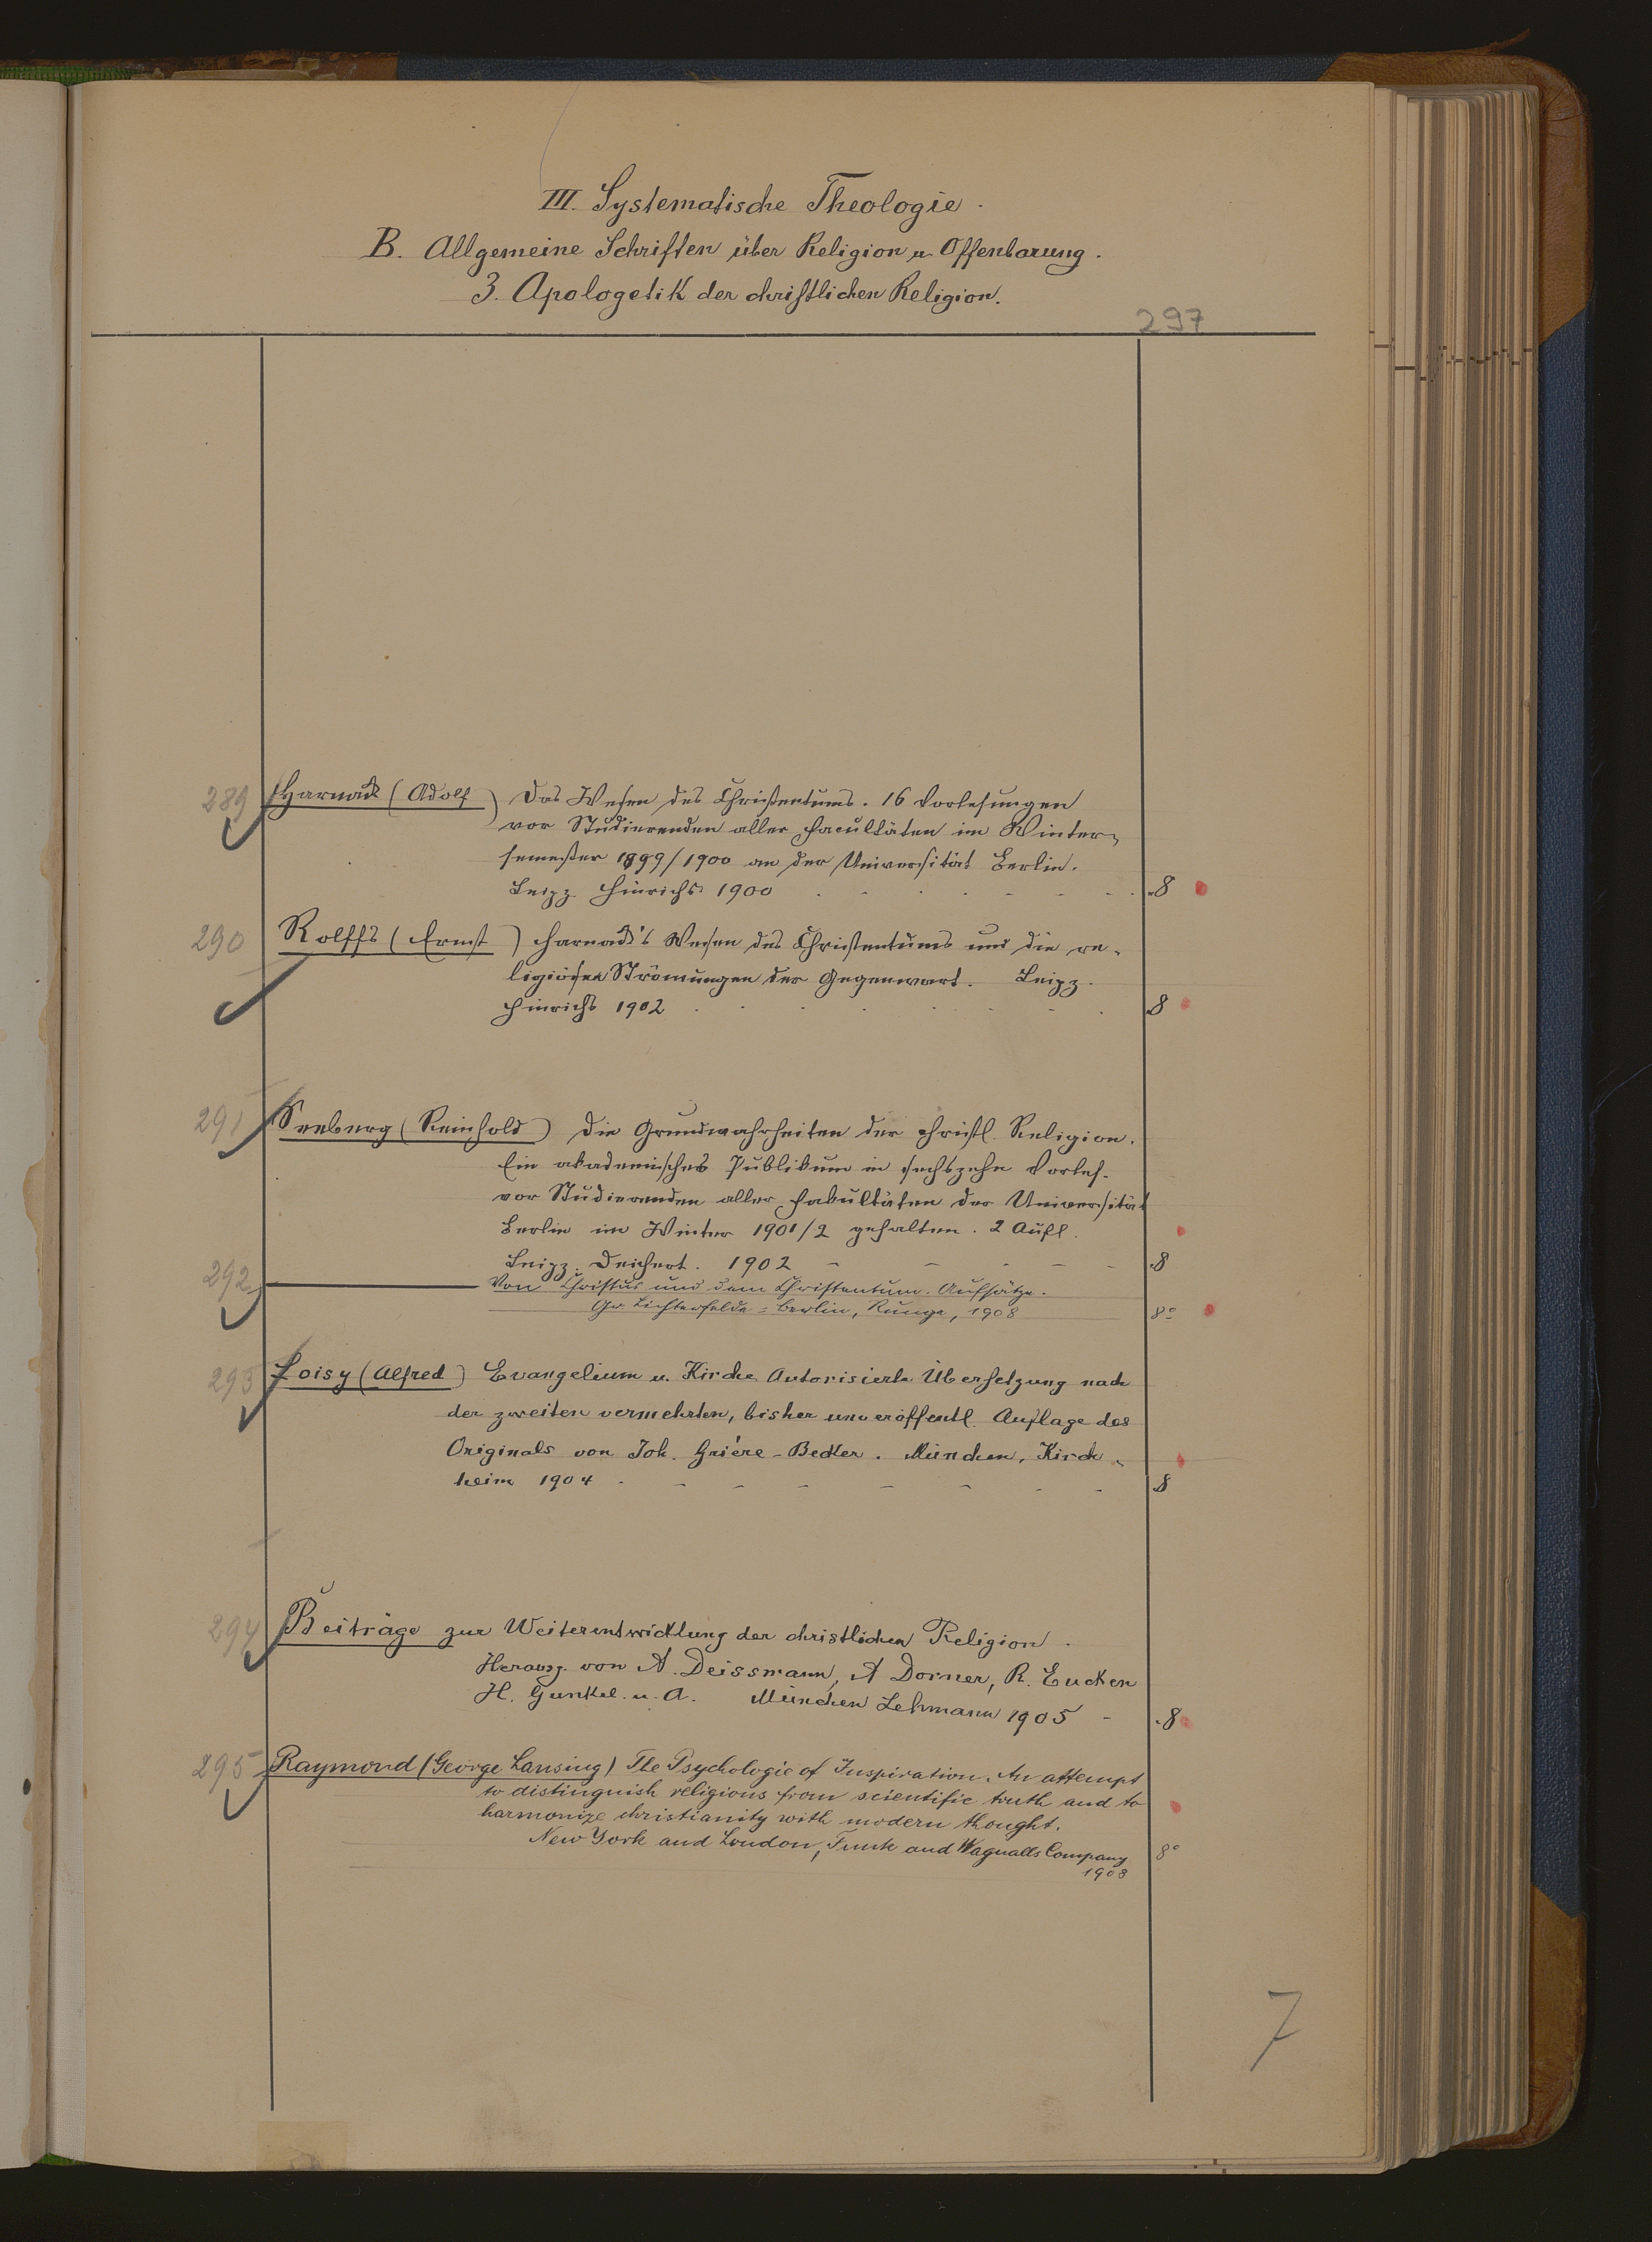 III. Systematische Theologie.
B. Allgemeine Schriften über Religion u. Offenbarung.
3. Apologetik der christlichen Religion.
297
289 Harnack (Adolf) Das Wesen des Christentums. 16 Vorlesungen
vor Studierenden aller Facultäten im Winter-
semester 1899/1900 an der Universität Berlin.
Leipz. Hinrichs 1900 8
290 Rolffs (Ernst) Harnack's Wesen des Christentums und die re-
ligiösen Strömungen der Gegenwart. Leipz.
Hinrichs 1902 8
291 Seeberg (Reinhold) Die Grundwahrheiten der christl. Religion.
Ein akademisches Publikum in sechszehn Vorles.
vor Studierenden aller Fakultäten der Universität
Berlin im Winter 1901/2 gehalten. 2 Aufl.
Leipz. Deichert. 1902 8
292 Von Christus und dem Christentum. Aufsätze.
Gr. Lichterfelde=Berlin, Runge, 1908 8°
293 Loisy (Alfred) Evangelium u. Kirche Autorisierte Übersetzung nach
der zweiten vermehrten, bisher unveröffentl. Auflage des
Originals von Joh. Grière-Becker. München, Kirch-
heim 1904 8
294 Beiträge zur Weiterentwicklung der christlichen Religion.
Herausg. von A. Deissmann, A Dorner, R. Eucken
H. Gunkel. u. A. München Lehmann 1905 8
295 Raymond (George Lansing) The Psychologie of Inspiration. An attempt
to distinguish religious from scientific truth and to
harmonize christianity with modern thought.
New York and London, Funk and Wagnalls Company 8°
1908
7